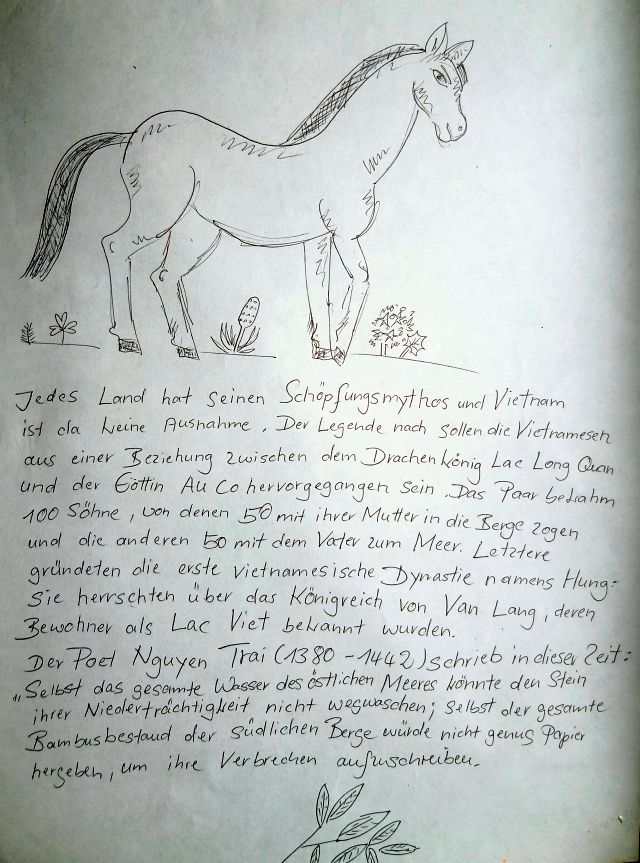 Jedes Land hat seinen Schöpfungsmythos und Vietnam
ist da keine Ausnahme. Der Legende nach sollen die Vietnamesen
aus einer Beziehung zwischen dem Drachenkönig Lac Long Quan
und der Göttin Au Co hervorgegangen sein. Das Paar bekahm
100 Söhne, von denen 50 mit ihrer Mutter in die Berge zogen
und die anderen 50 mit dem Vater zum Meer. Letztere
gründeten die erste vietnamesische Dynastie namens Hung:
Sie herrschten über das Königreich von Van Lang, deren
Bewohner als Lac Viet bekannt wurden.
Der Poet Nguyen Trai (1380-1442) schrieb in dieser Zeit:
"Selbst das gesamte Wasser des östlichen Meeres könnte den Stein
ihrer Niederträchtigkeit nicht wegwaschen; selbst der gesamte
Bambusbestand der südlichen Berge würde nicht genug Papier
hergeben, um ihre Verbrechen aufzuschreiben.